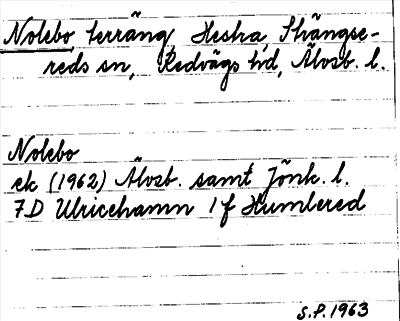 Nolebo, terräng, Hestra, Strängse-
reds sn, Redvägs hd, Älvsb. l.
Nolebo
ek (1962) Älvsb. samt Jönk. l.
7D Ulricehamn 1f Humlered
S.P. 1963